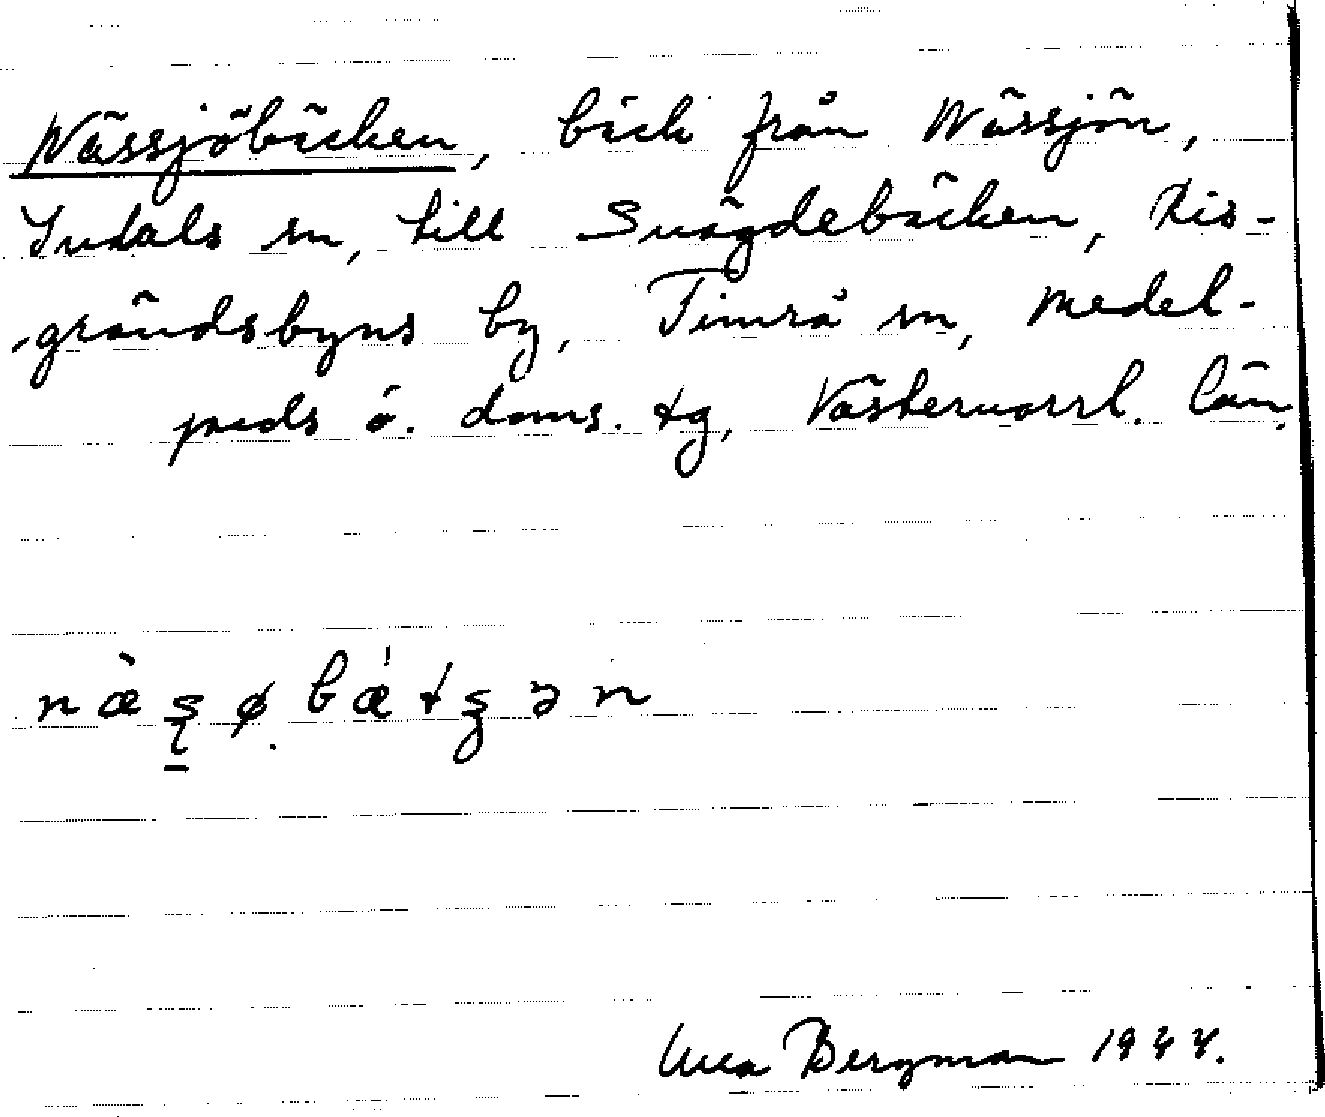 Nässjöbäcken, bäck från Nässjön,
Indals sn, till Snägdebäcken, Lis-
gründsbyns by, Timrå sn, Medel-
pads ö. doms. tg, Västernorrl. län.
Bergman 1944.